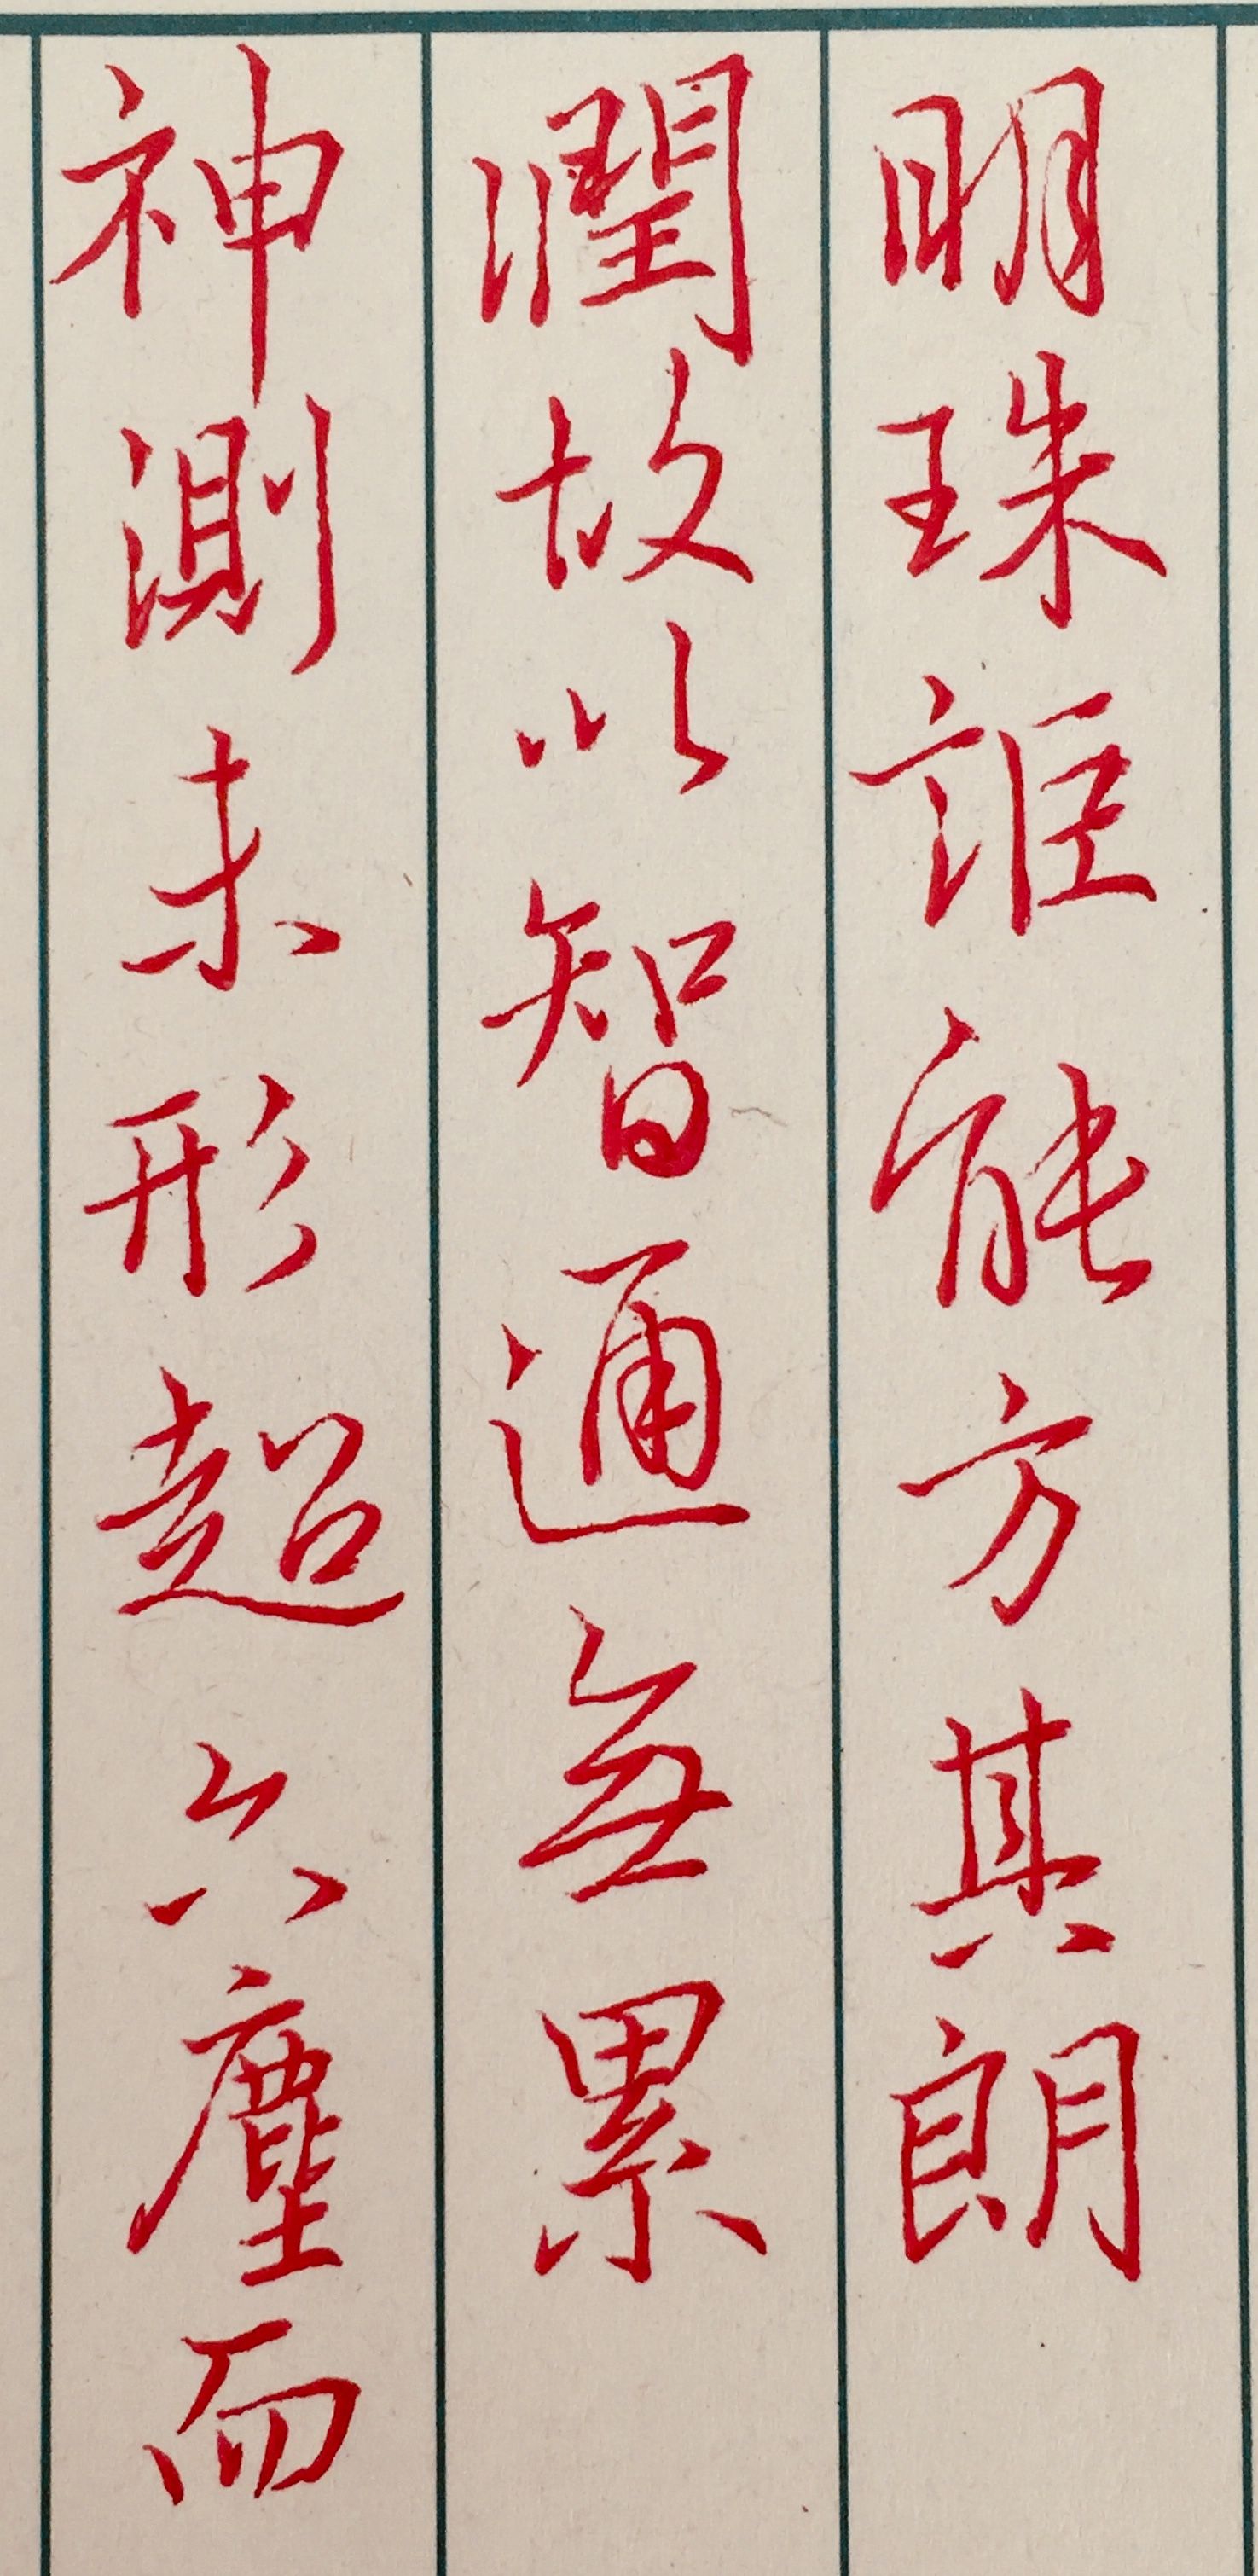 明珠詎能方其朗
潤故以智通無累
神測未形超六塵而